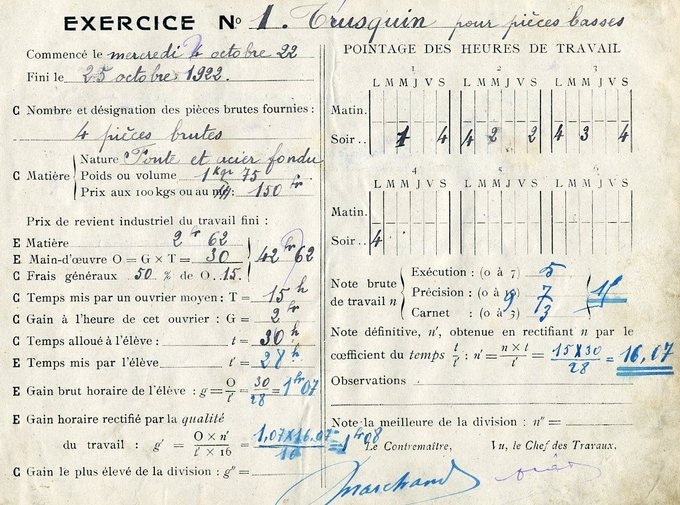 EXERCICE No 1. Trusquin pour pièces basses
Commencé le mercredi 4 octobre 22
Fini le 25 octobre 1922.
C Nombre et désignation des pièces brutes fournies :
4 pièces brutes
C Matière
Nature Fonte et acier fondu
Poids ou volume 1 kgr 75
Prix aux 100 kgs ou au m3 : 150 fr
Prix de revient industriel du travail fini :
E Matière 2 fr 62
E Main-d'œuvre O = G × T = 30
C Frais généraux 50 % de O.. 15.
42 fr 62
C Temps mis par un ouvrier moyen : T = 15 h
C Gain à l'heure de cet ouvrier : G = 2 fr
C Temps alloué à l'élève : t = 30 h
E Temps mis par l'élève t' = 28 h
E Gain brut horaire de l'élève : g = O/t' = 30/28 = 1 fr 07
E Gain horaire rectifié par la qualité
du travail : g' = O × n'/t' × 16 = 1,07 × 16.07/16 = 1 fr 08
C Gain le plus élevé de la division : g" =
POINTAGE DES HEURES DE TRAVAIL
1 2 3
L M M J V S L M M J V S L M M J V S
Matin.
Soir.. 1 4 4 2 2 4 3 4
4 5 6
L M M J V S L M M J V S L M M J V S
Matin.
Soir.. 4
Note brute
de travail n
Exécution : (0 à 7) 5
Précision : (0 à 9) 7
Carnet : (0 à 3) 3
15
Note définitive, n', obtenue en rectifiant n par le
coefficient du temps t/t' : n' = n × t/t' = 15 × 30/28 = 16,07
Observations
Note la meilleure de la division : n" =
Le Contremaître, Vu, le Chef des Travaux.
Marchand